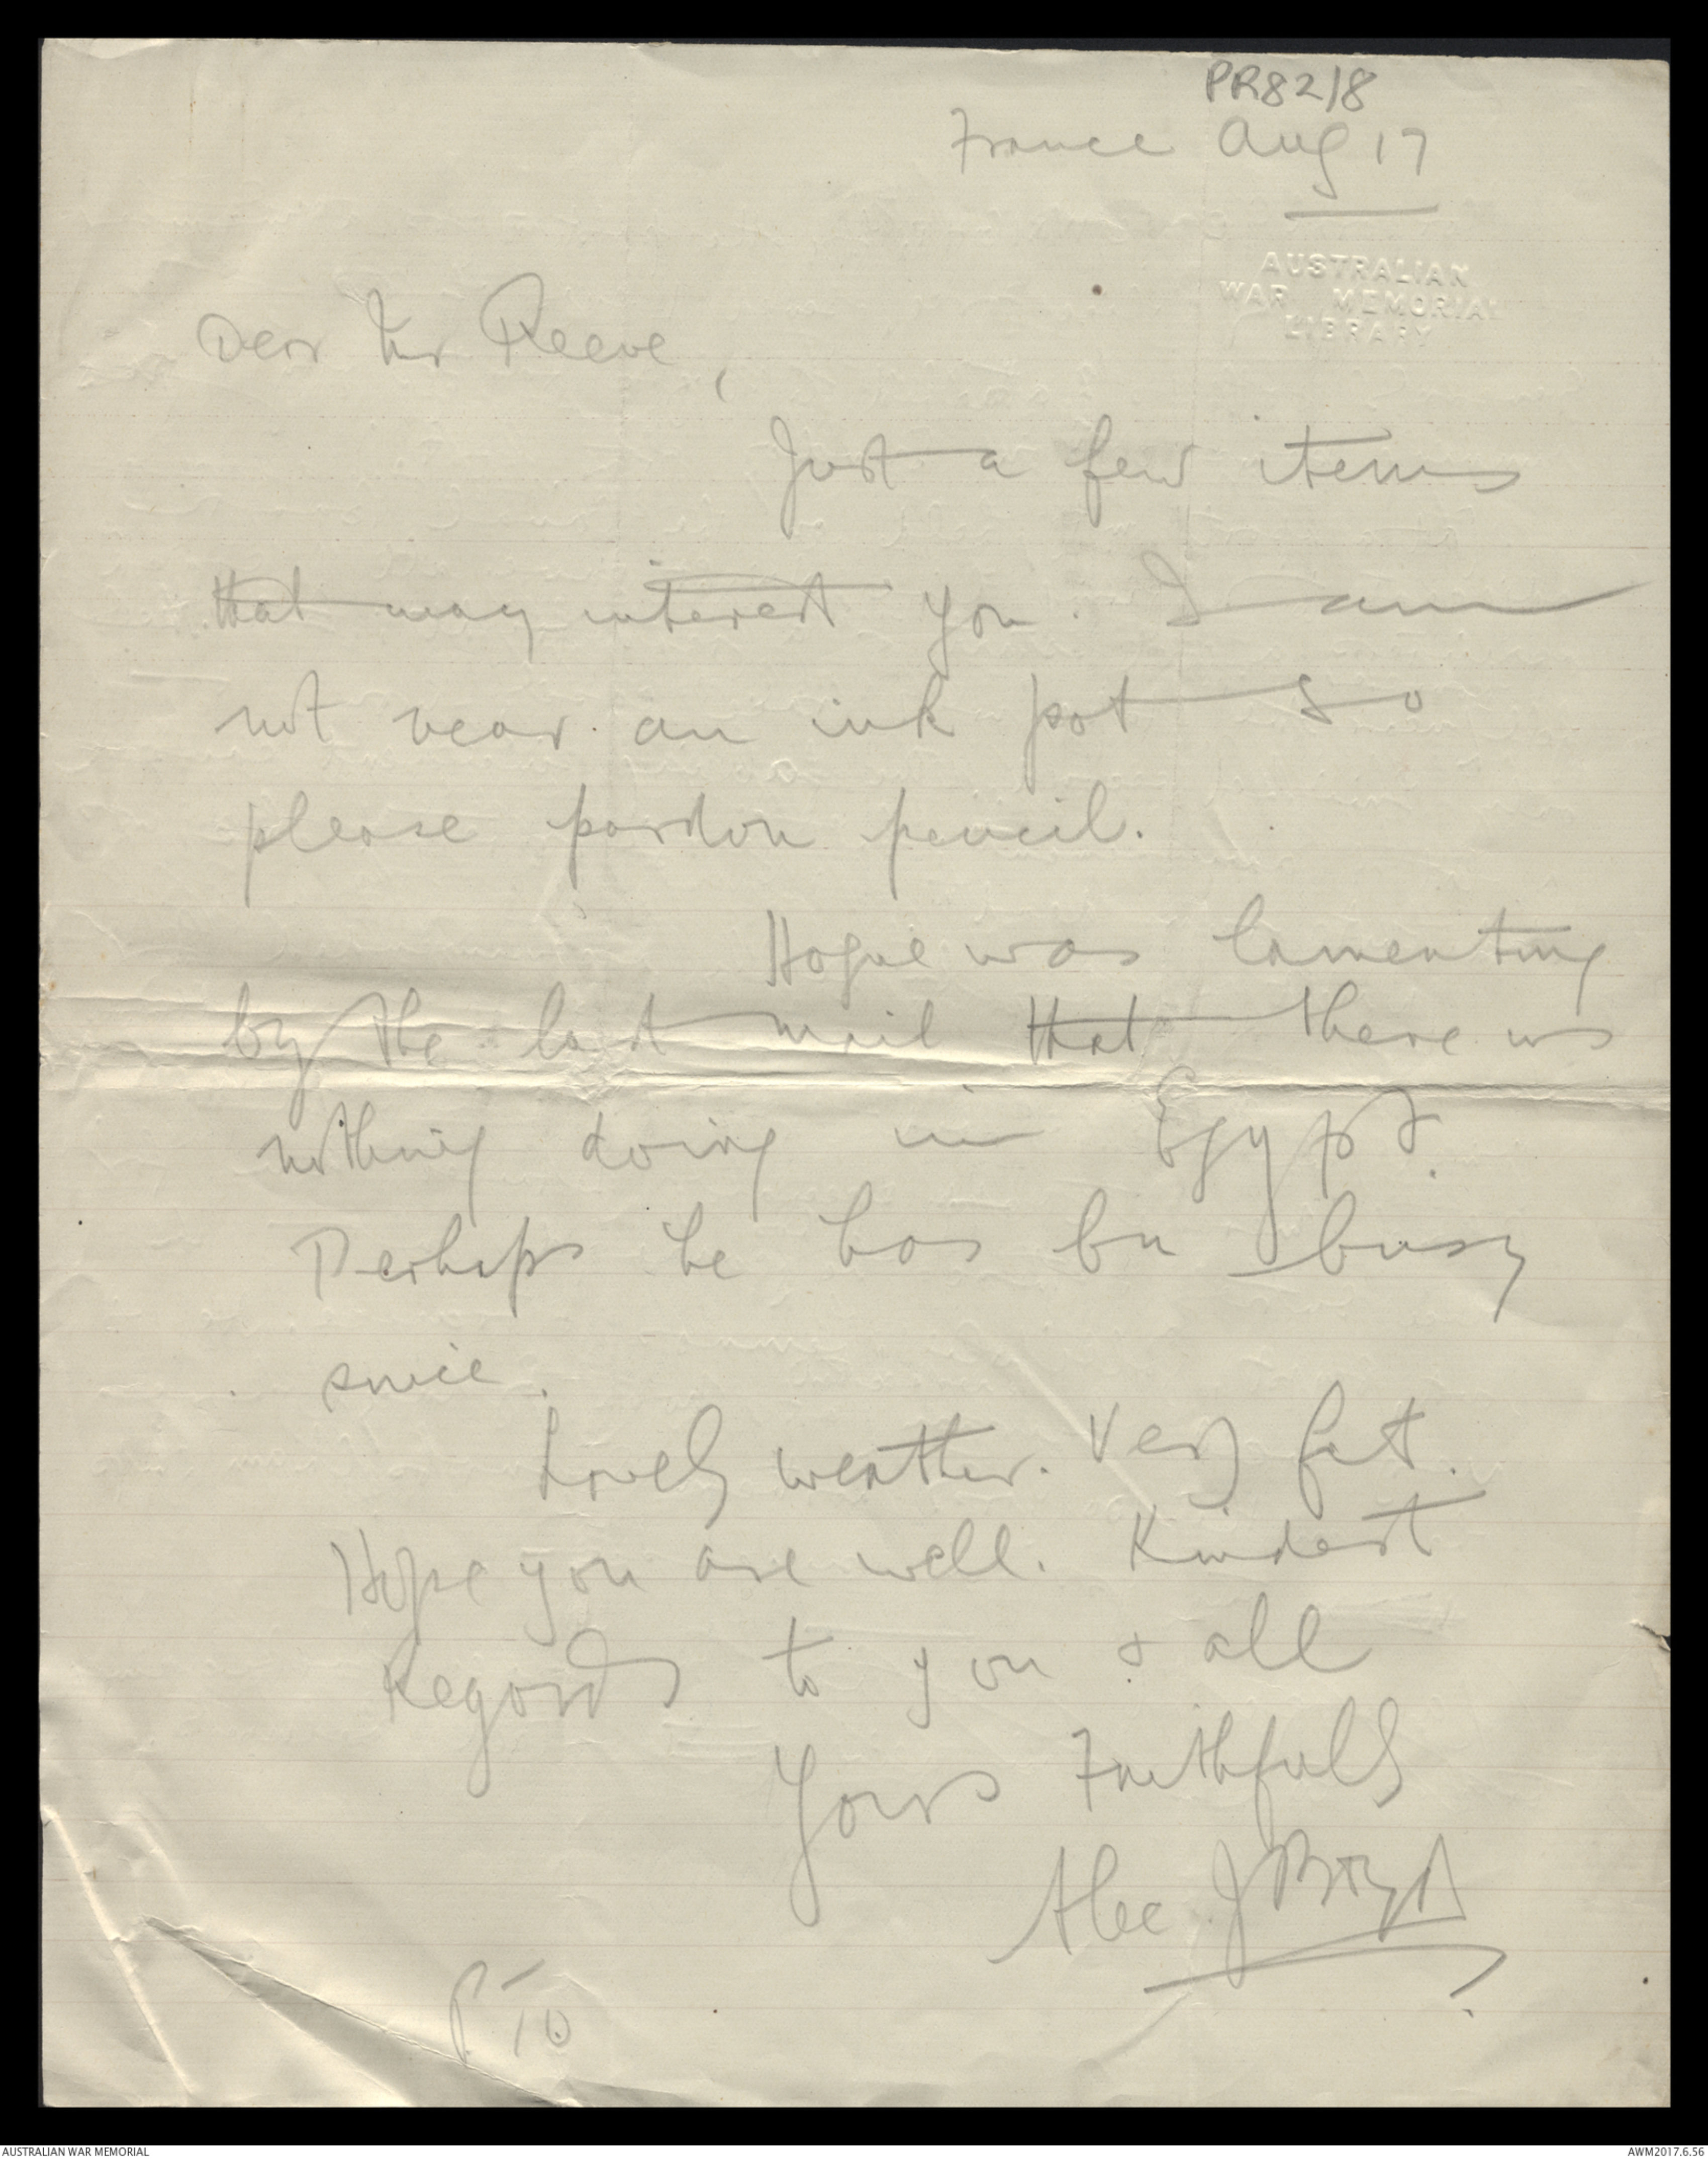 PR82/8
France Aug 17
AUSTRALIAN
WAR MEMORIAL
LIBRARY
Dear Mr Reeve,
Just a few items
that may interest you. I am
not near an ink pot so
please pardon pencil.
Hogue was lamenting
by the last mail that there was
nothing doing in Egypt.
Perhaps he has bn busy
since.
Lovely weather. Very fat.
Hope you are well. Kindest
Regards to you & all
Yours Faithfully
Alec J Boyd
PTO
AUSTRALIAN WAR MEMORIAL
AWM2017.6.56